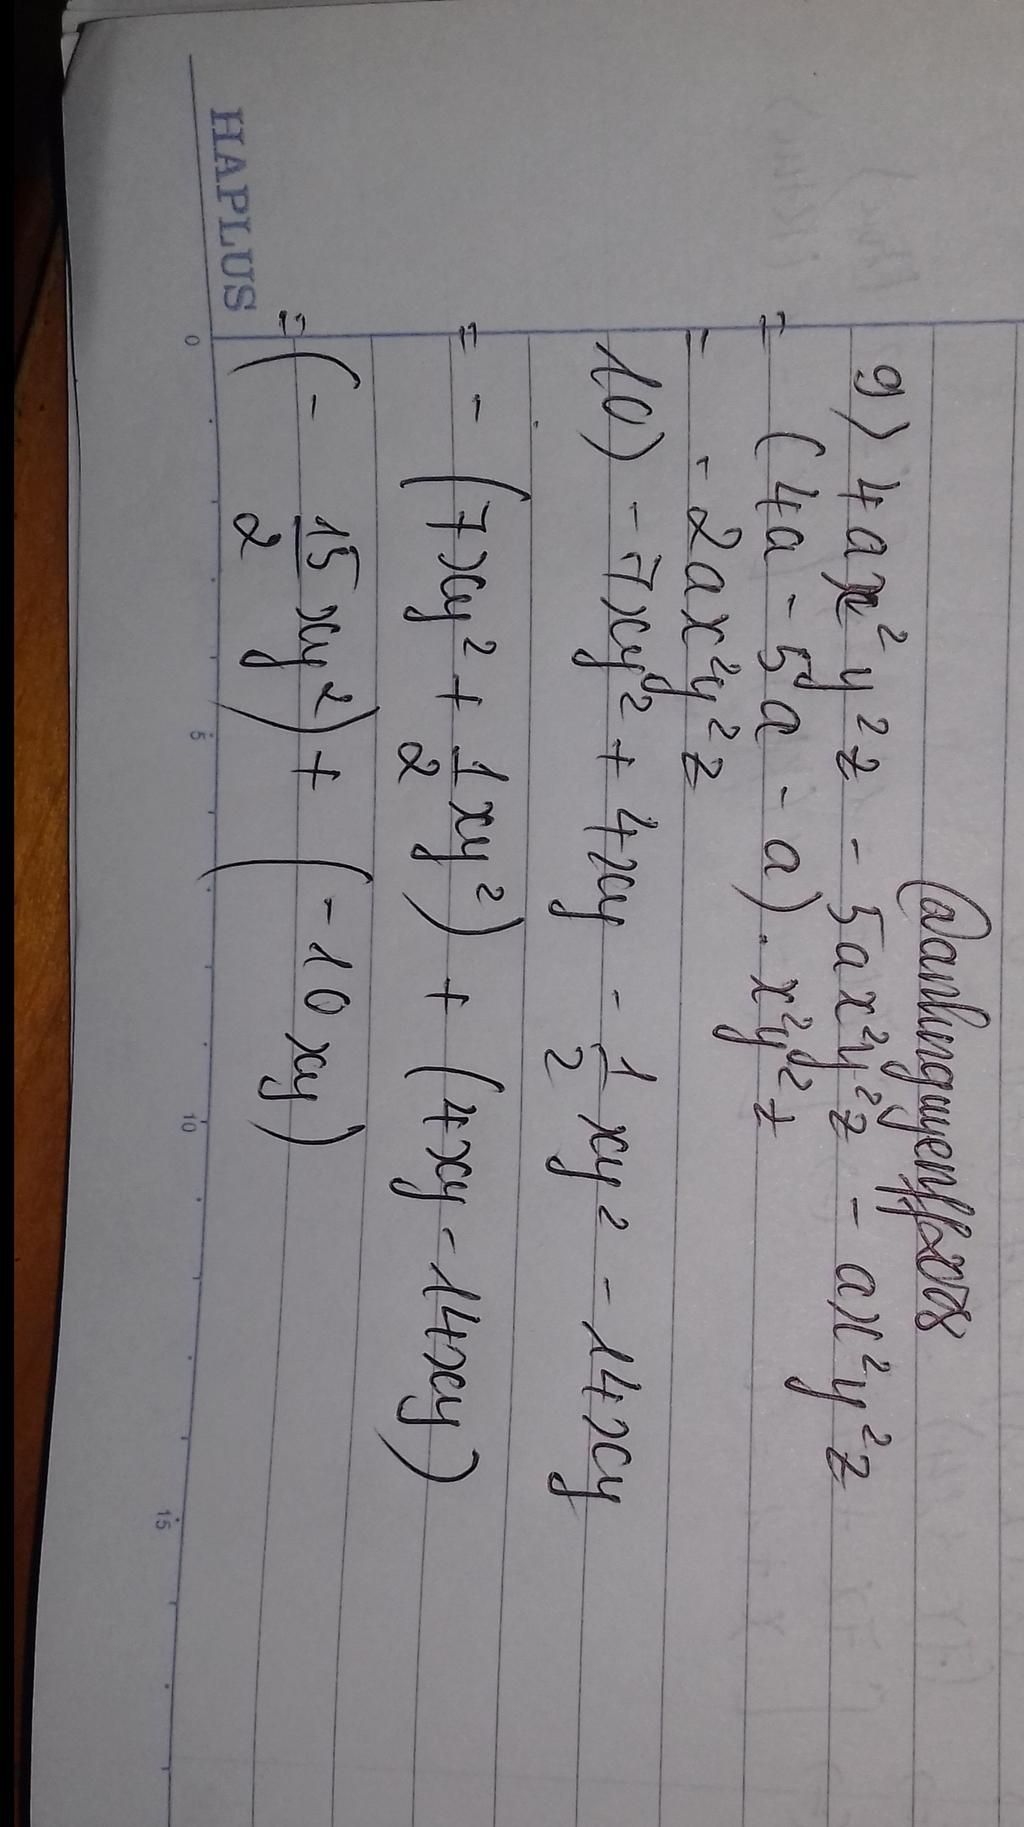 @danhnguyen162008
9) 4ax²y²z - 5ax²y²z - ax²y²z
= (4a - 5a - a) . x²y²z
= - 2ax²y²z
10) - 7xy² + 4xy - 1/2 xy² - 14xy
= - (7xy² + 1/2 xy²) + (4xy - 14xy)
= (- 15/2 xy²) + (- 10xy)
HAPLUS
0 5 10 15